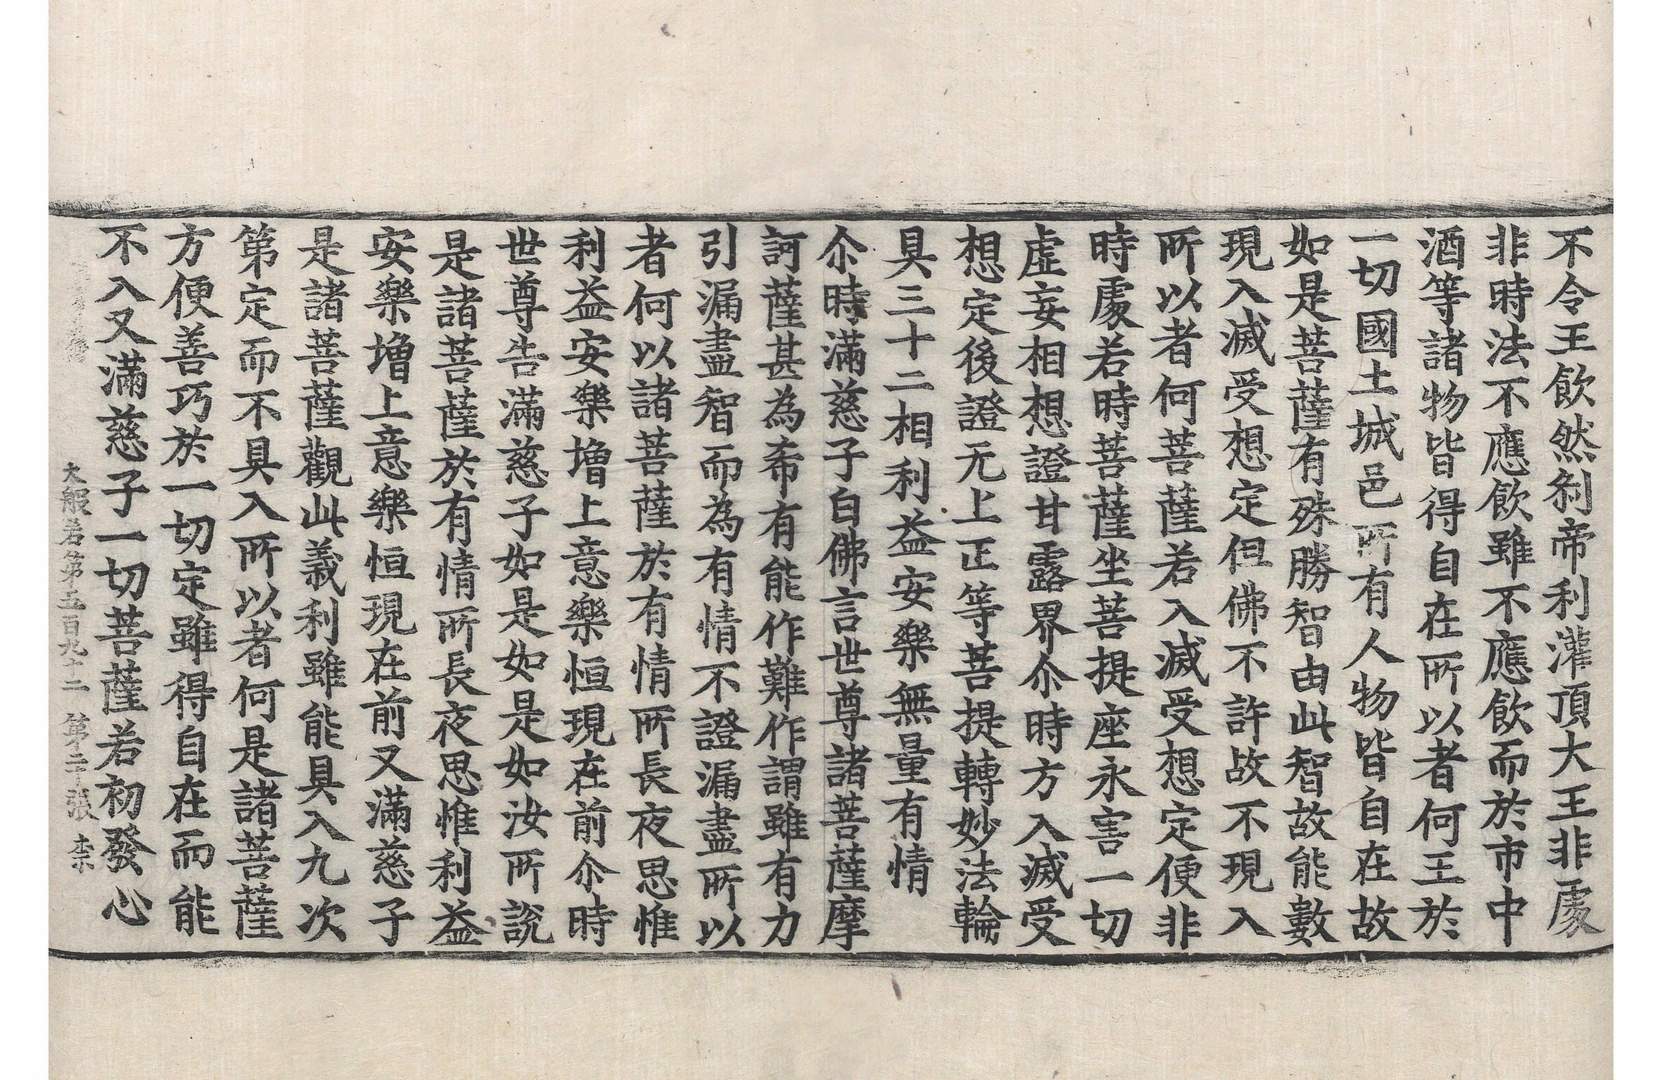 不令王飲然剎帝利灌頂大王非處
非時法不應飲雖不應飲而於市中
酒等諸物皆得自在所以者何王於
一切國土城邑所有人物皆自在故
如是菩薩有殊勝智由此智故能數
現入滅受想定但佛不許故不現入
所以者何菩薩若入滅受想定便非
時處若時菩薩坐菩提座永害一切
虛妄相想證甘露界尒時方入滅受
想定後證无上正等菩提轉妙法輪
具三十二相利益安樂無量有情
尒時滿慈子白佛言世尊諸菩薩摩
訶薩甚為希有能作難作謂雖有力
引漏盡智而為有情不證漏盡所以
者何以諸菩薩於有情所長夜思惟
利益安樂增上意樂恒現在前尒時
世尊告滿慈子如是如是如汝所說
是諸菩薩於有情所長夜思惟利益
安樂增上意樂恒現在前又滿慈子
是諸菩薩觀此義利雖能具入九次
第定而不具入所以者何是諸菩薩
方便善巧於一切定雖得自在而能
不入又滿慈子一切菩薩若初發心
大般若第五百九十二 第二十張 李